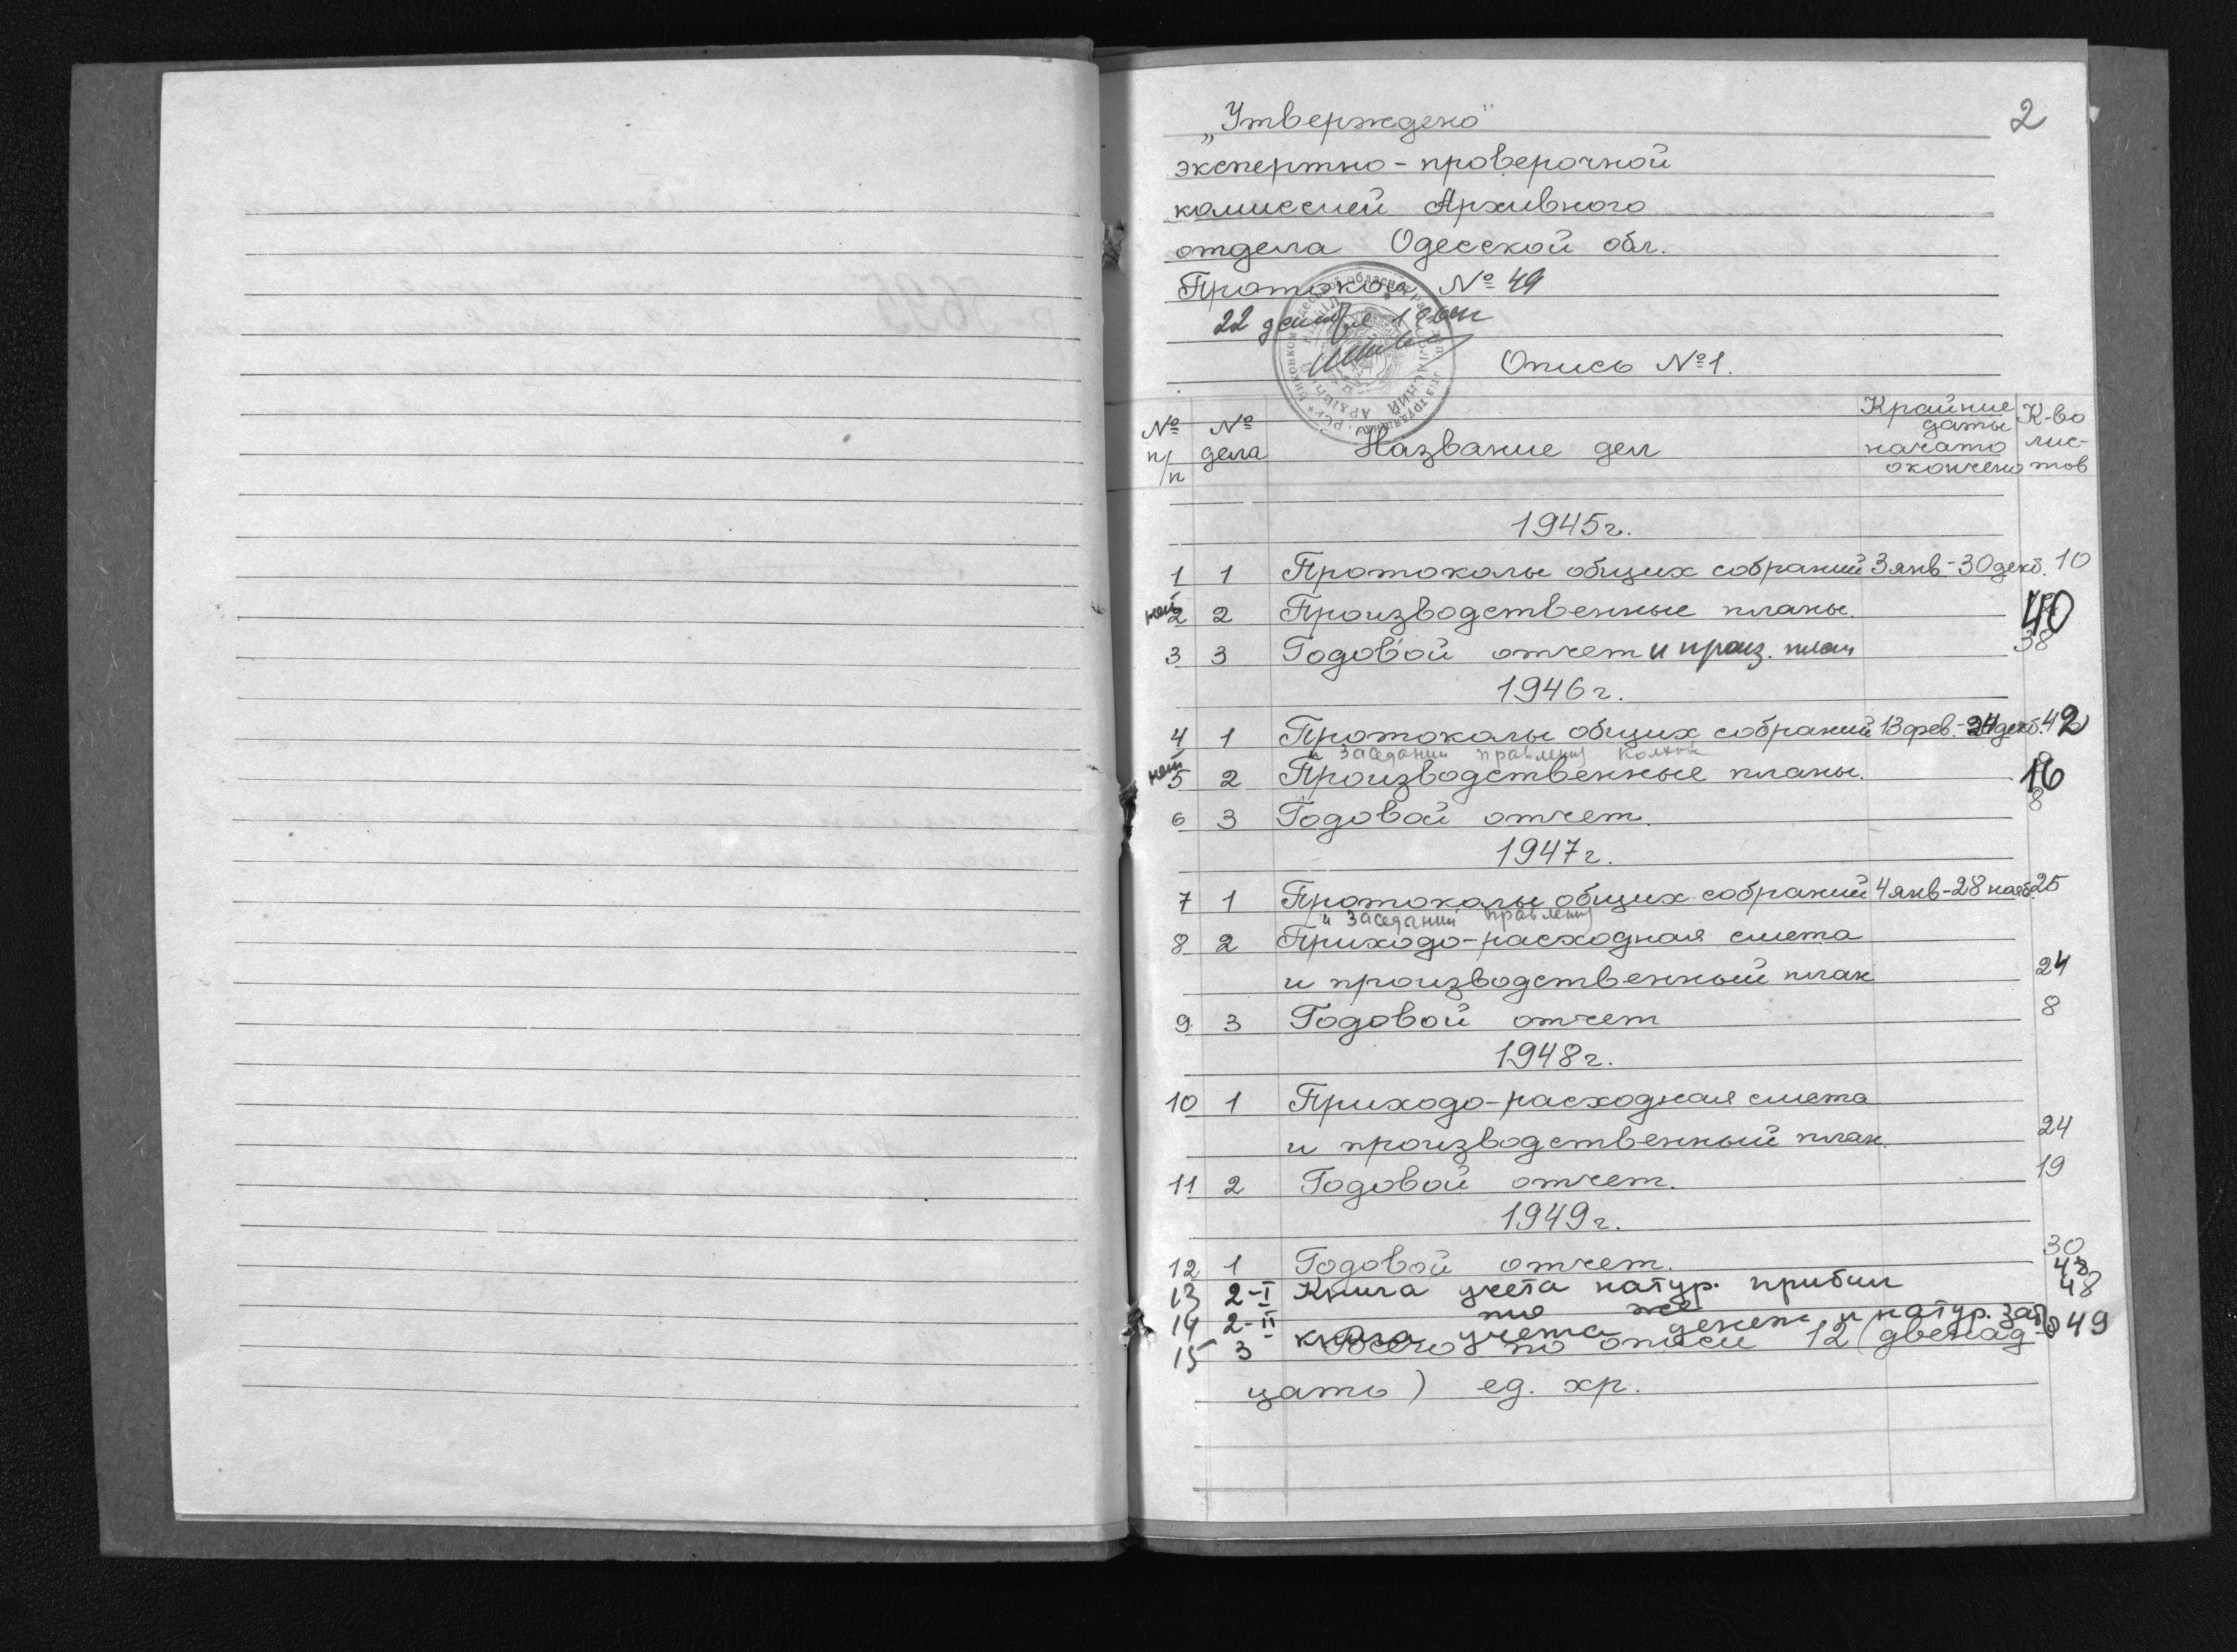 2
„Утверждено"
экспертно-проверочной
комиссией Архивного
отдела Одесской обл.
Протокол № 49
22
Опись №1.
№ п/п № дела Название дел Крайние даты начато окончено К-во лис-тов
1945г.
1 1 Протоколы общих собраний 3 янв.-30 дек. 10
нет 2 2 Производственные планы. 40
3 3 Годовой отчет и произ. план 38
1946г.
4 1 Протоколы общих собраний 13 фев.- дек. 42
и заседаний правления
нет 5 2 Производственные планы. 16
6 3 Годовой отчет. 8
1947г.
7 1 Протоколы общих собраний 4 янв-28 нояб. 25
и заседаний правления
8 2 Приходо-расходная смета
и производственный план 24
9 3 Годовой отчет 8
1948г.
10 1 Приходо-расходная смета
и производственный план. 24
11 2 Годовой отчет. 19
1949г.
12 1 Годовой отчет. 30
13 2-I Книга учета натур. 48
14 2-II то же 48
15 3 книга учета денеж и натур. 49
Всего по описи 12 (двенад-
цать) ед. хр.